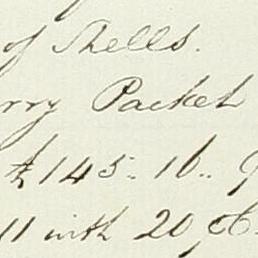 of Shells.
rry Packet
£145.. 16..
11 with 20 pCt.